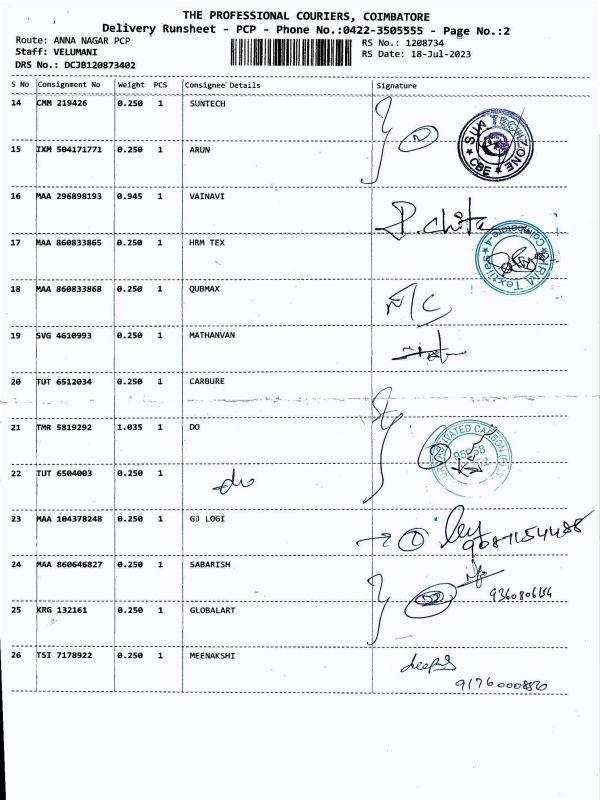 THE PROFESSIONAL COURIERS, COIMBATORE
Delivery Runsheet - PCP - Phone No.:0422-3505555 - Page No.:2
Route: ANNA NAGAR PCP RS No.: 1208734
Staff: VELUMANI RS Date: 18-Jul-2023
DRS No.: DCJB120873402
S No Consignment No Weight PCS Consignee Details Signature
14 CMM 219426 0.250 1 SUNTECH
SUN TECHZONE
★ CBE ★
15 IXM 504171771 0.250 1 ARUN
16 MAA 296898193 0.945 1 VAINAVI
P. chitra
17 MAA 860833865 0.250 1 HRM TEX
HRM Textiles
Coimbatore-4
18 MAA 860833868 0.250 1 QUBMAX
19 SVG 4610993 0.250 1 MATHANVAN
20 TUT 6512034 0.250 1 CARBURE
21 TMR 5819292 1.035 1 DO
22 TUT 6504003 0.250 1 do
23 MAA 104378248 0.250 1 GJ LOGI
24 MAA 860646827 0.250 1 SABARISH
25 KRG 132161 0.250 1 GLOBALART
26 TSI 7178922 0.250 1 MEENAKSHI